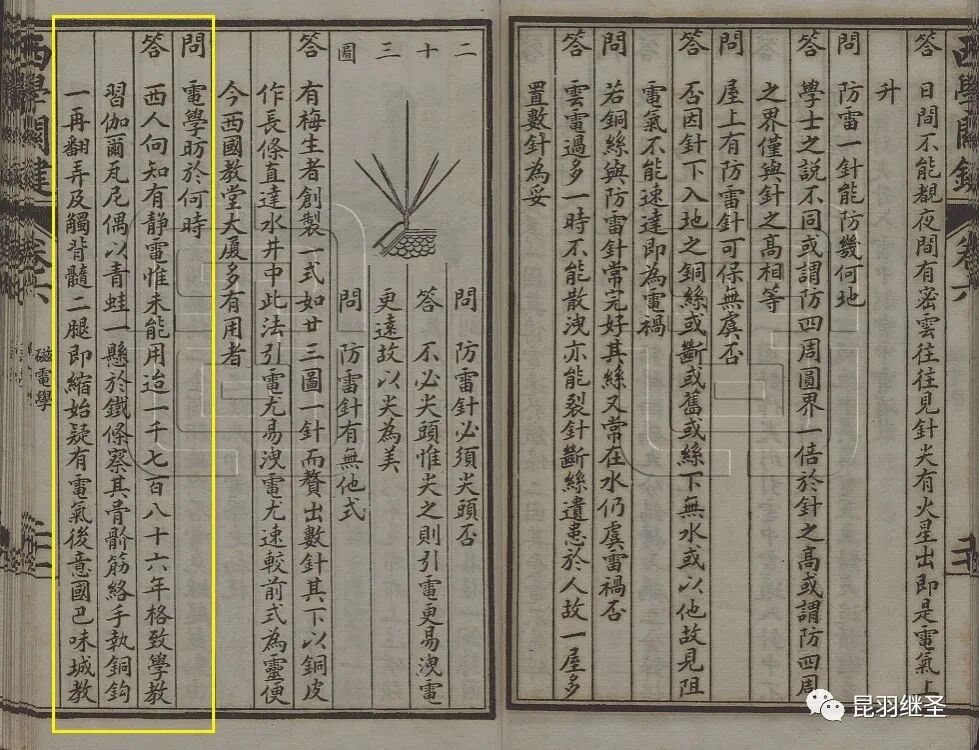 西學關鍵 卷六
答 日間不能覩夜間有密雲往往見針尖有火星出即是電氣上
升
問 防雷一針能防幾何地
答 學士之說不同或謂防四周圓界一倍於針之高或謂防四周
之界僅與針之高相等
問 屋上有防雷針可保無虞否
答 否因針下入地之銅絲或斷或舊或絲下無水或以他故見阻
電氣不能速達即為電禍
問 若銅絲與防雷針常完好其絲又常在水仍虞雷禍否
答 雲電過多一時不能散洩亦能裂針斷絲遺患於人故一屋多
置數針為妥
二十三圖
問 防雷針必須尖頭否
答 不必尖頭惟尖之則引電更易洩電
更遠故以尖為美
問 防雷針有無他式
答 有梅生者創製一式如廿三圖一針而贅出數針其下以銅皮
作長條直達水井中此法引電尤易洩電尤速較前式為靈便
今西國教堂大廈多有用者
問 電學昉於何時
答 西人向知有靜電惟未能用迨一千七百八十六年格致學教
習伽爾瓦尼偶以青蛙一懸於鐵條察其骨骱筋絡手執銅鈎
一再翻弄及觸背髓二腿即縮始疑有電氣後意國巴味城教
西學關鍵 卷六
磁電學
昆羽继圣